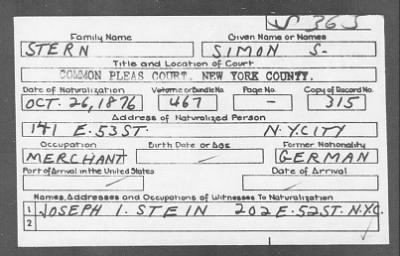 S 365
Family Name Given Name or Names
STERN SIMON S-
Title and Location of Court
COMMON PLEAS COURT, NEW YORK COUNTY.
Date of Naturalization Volume or Bundle No. Page No. Copy of Record No.
OCT. 26, 1876 467 - 315
Address of Naturalized Person
141 E. 53 ST. N.Y.CITY
Occupation Birth Date or Age Former Nationality
MERCHANT GERMAN
Port of Arrival in the United States Date of Arrival
Names, Addresses and Occupations of Witnesses To Naturalization
1 JOSEPH I. STEIN 202 E. 52 ST. N.Y.C.
2